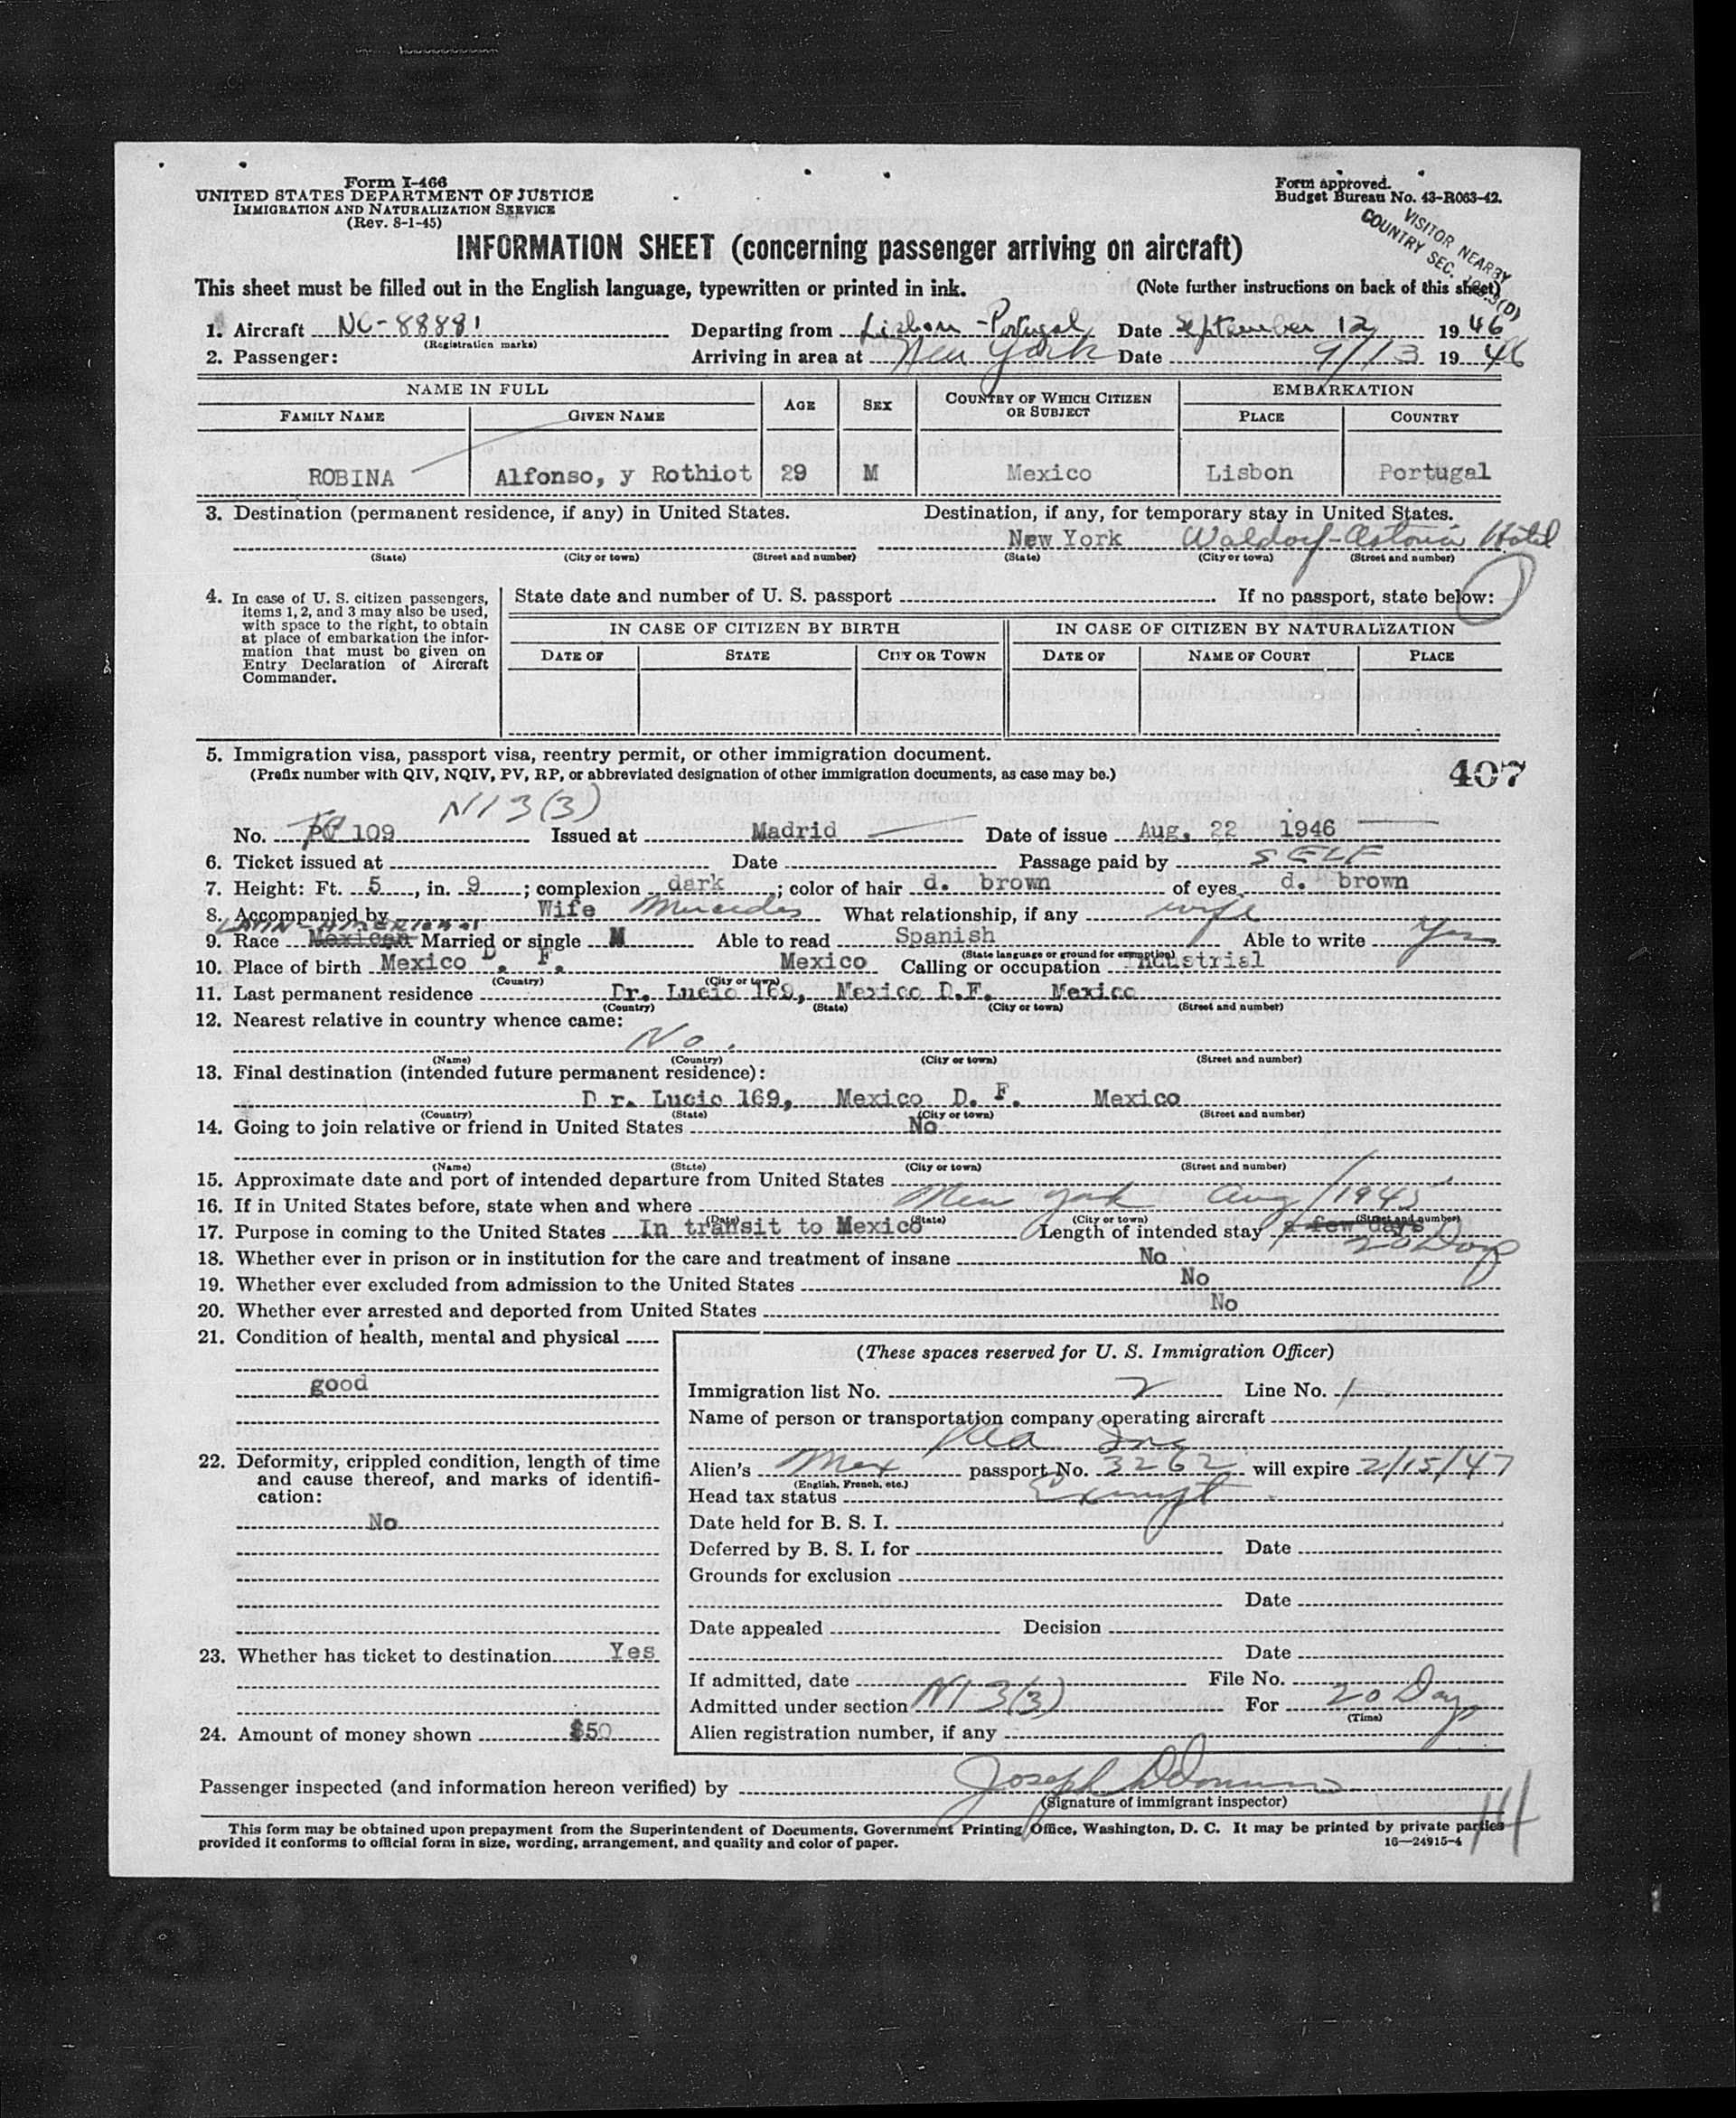 Form I-466
UNITED STATES DEPARTMENT OF JUSTICE
IMMIGRATION AND NATURALIZATION SERVICE
(Rev. 8-1-45)
Form approved.
Budget Bureau No. 43-R063-42.
VISITOR NEARBY
COUNTRY SEC.
INFORMATION SHEET (concerning passenger arriving on aircraft)
This sheet must be filled out in the English language, typewritten or printed in ink. (Note further instructions on back of this sheet)
1. Aircraft NC-88881 Departing from Lisbon - Portugal Date September 12 1946
(Registration marks)
2. Passenger: Arriving in area at New York Date 9/13 1946
NAME IN FULL AGE SEX COUNTRY OF WHICH CITIZEN OR SUBJECT EMBARKATION
FAMILY NAME GIVEN NAME PLACE COUNTRY
ROBINA Alfonso, y Rothiot 29 M Mexico Lisbon Portugal
3. Destination (permanent residence, if any) in United States. Destination, if any, for temporary stay in United States.
New York Waldorf-Astoria Hotel
(State) (City or town) (Street and number) (State) (City or town) (Street and number)
4. In case of U. S. citizen passengers, items 1, 2, and 3 may also be used, with space to the right, to obtain at place of embarkation the information that must be given on Entry Declaration of Aircraft Commander.
State date and number of U. S. passport If no passport, state below:
IN CASE OF CITIZEN BY BIRTH IN CASE OF CITIZEN BY NATURALIZATION
DATE OF STATE CITY OR TOWN DATE OF NAME OF COURT PLACE
5. Immigration visa, passport visa, reentry permit, or other immigration document.
(Prefix number with QIV, NQIV, PV, RP, or abbreviated designation of other immigration documents, as case may be.)
407
N13(3)
No. PV 109 Issued at Madrid Date of issue Aug. 22 1946
6. Ticket issued at Date Passage paid by SELF
7. Height: Ft. 5, in. 9; complexion dark; color of hair d. brown of eyes d. brown
8. Accompanied by Wife Mercedes What relationship, if any wife
LATIN-AMERICAN
9. Race Mexican Married or single M Able to read Spanish Able to write Yes
(State language or ground for exemption)
10. Place of birth Mexico D. F. Mexico Calling or occupation Industrial
(Country) (City or town)
11. Last permanent residence Dr. Lucio 169, Mexico D.F. Mexico
(Country) (State) (City or town) (Street and number)
12. Nearest relative in country whence came:
No.
(Name) (Country) (City or town) (Street and number)
13. Final destination (intended future permanent residence):
D r. Lucio 169, Mexico D. F. Mexico
(Country) (State) (City or town) (Street and number)
14. Going to join relative or friend in United States No
(Name) (State) (City or town) (Street and number)
15. Approximate date and port of intended departure from United States
16. If in United States before, state when and where New York Aug/1945
(Date) (State) (City or town) (Street and number)
17. Purpose in coming to the United States In transit to Mexico Length of intended stay a few days
20 Days
18. Whether ever in prison or in institution for the care and treatment of insane No
19. Whether ever excluded from admission to the United States No
20. Whether ever arrested and deported from United States No
21. Condition of health, mental and physical
good
22. Deformity, crippled condition, length of time and cause thereof, and marks of identification:
No
23. Whether has ticket to destination Yes
24. Amount of money shown $50
(These spaces reserved for U. S. Immigration Officer)
Immigration list No. 2 Line No. 1
Name of person or transportation company operating aircraft
Inc
Alien's Mex passport No. 3262 will expire 2/15/47
(English, French, etc.)
Head tax status Exempt
Date held for B. S. I.
Deferred by B. S. I. for Date
Grounds for exclusion
Date
Date appealed Decision
Date
If admitted, date File No.
Admitted under section N1 3(3) For 20 Days
(Time)
Alien registration number, if any
Passenger inspected (and information hereon verified) by Joseph
(Signature of immigrant inspector)
This form may be obtained upon prepayment from the Superintendent of Documents, Government Printing Office, Washington, D. C. It may be printed by private parties
provided it conforms to official form in size, wording, arrangement, and quality and color of paper.
16—24915-4